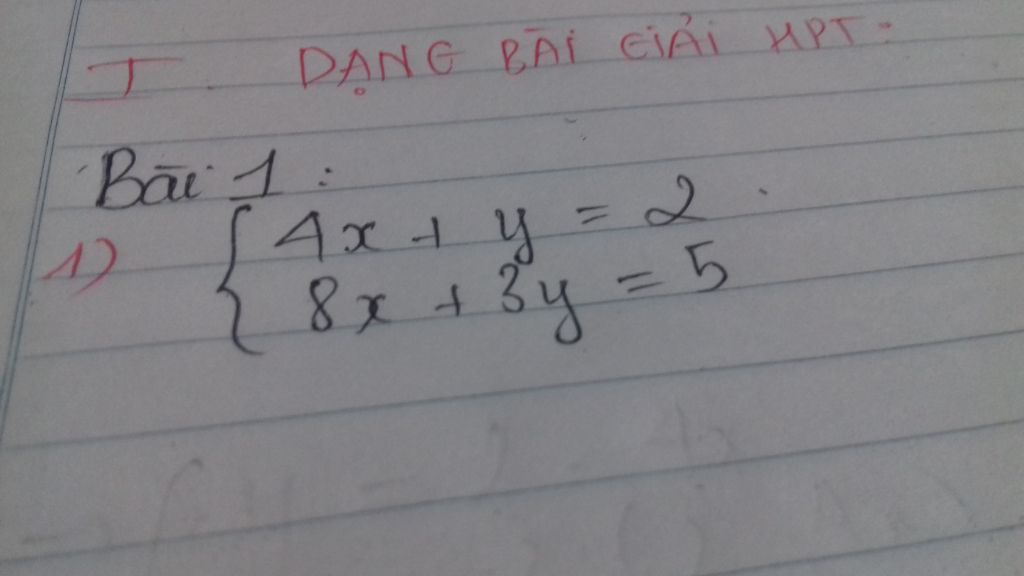 I. DẠNG BÀI GIẢI HPT:
Bài 1:
1) { 4x + y = 2
8x + 3y = 5